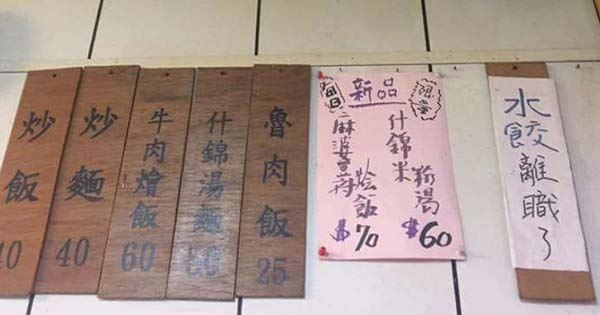 炒飯
炒麵
40
牛肉燴飯
60
什錦湯麵
50
魯肉飯
25
每日
新品
限量
什錦米粉湯
$60
麻婆荳腐烩飯
$70
水餃離職了